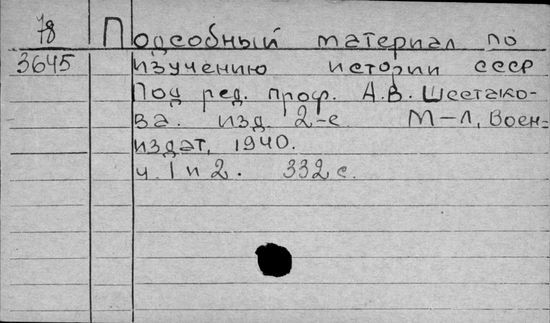 78 Подсобный материал по
3645 изучению истории СССР
Под ред. проф. А.В. Шестако-
ва. изд. 2-е М-Л, Воен-
издат, 1940.
ч. 1 и 2. 332 с.